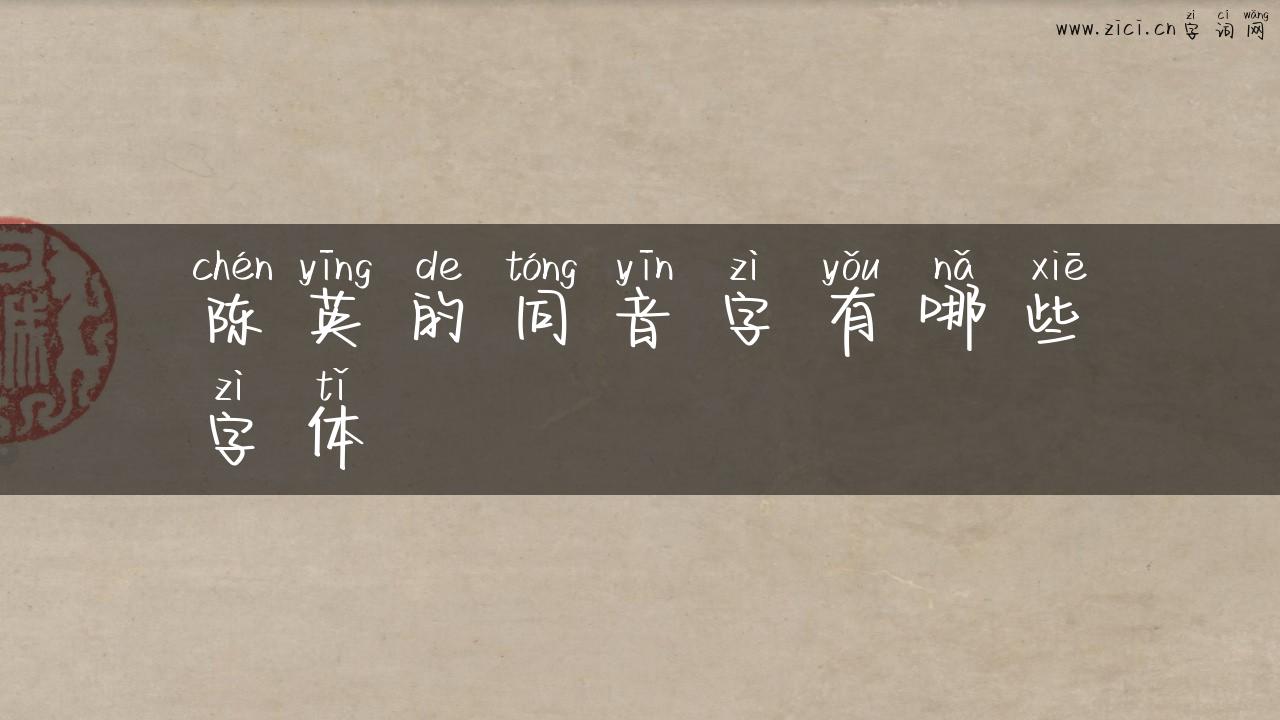 zì cí wǎng
www.zici.cn 字词网
chén yīng de tóng yīn zì yǒu nǎ xiē
陈英的同音字有哪些
zì tǐ
字体